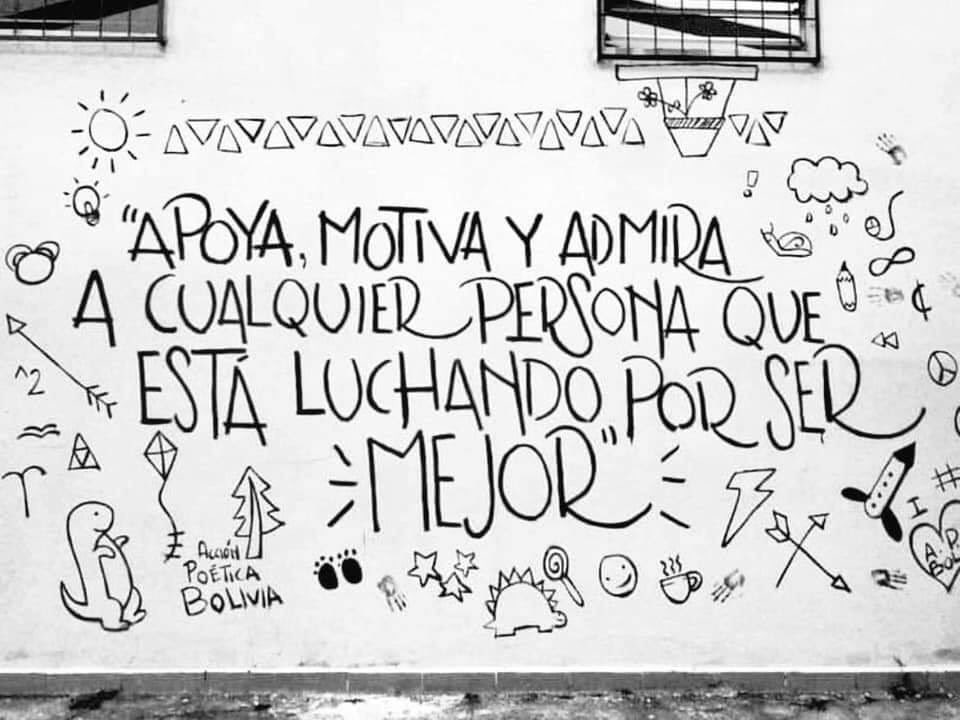 "APOYA, MOTIVA Y ADMIRA
A CUALQUIER PERSONA QUE
ESTÁ LUCHANDO POR SER
MEJOR"
^2
ACCIÓN
POÉTICA
BOLIVIA
!
¢
#
I
A.P.
BOL